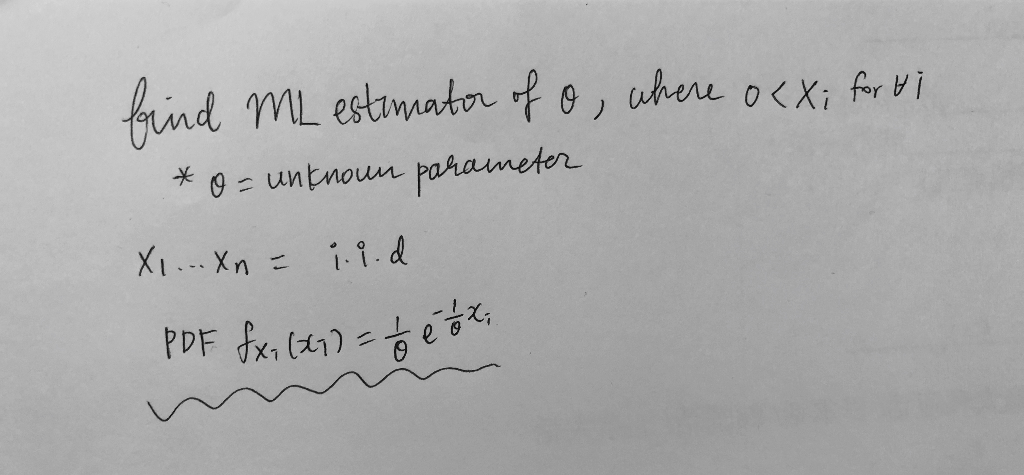 find ML estimator of θ, where 0 < Xi for ∀i
* θ = unknown parameter
X1 ... Xn = i.i.d
PDF fXi (xi) = 1/θ e^(-1/θ xi)